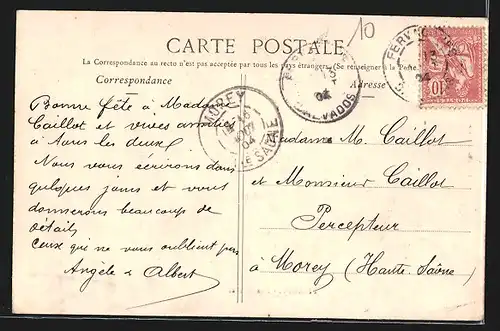 10
CARTE POSTALE
La Correspondance au recto n'est pas acceptée par tous les pays étrangers. (Se renseigner à la Poste.)
Correspondance
Adresse
Bonne fête à Madame
Caillot et vives amitiés
à tous les deux.
Nous vous écrirons dans
quelques jours et vous
donnerons beaucoup de
détails
Ceux qui ne vous oublient pas
Angèle & Albert
MOREY
04
HTE SAONE
04
CALVADOS
04
10
Madame M. Caillot
et Monsieur Caillot
Percepteur
à Morey (Haute Saône)